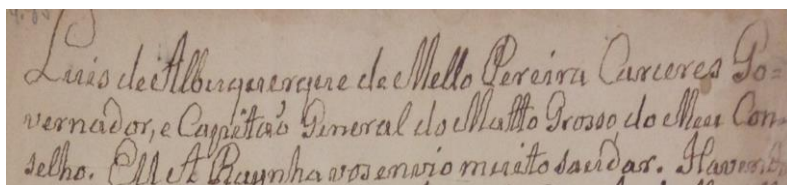 Luis de Albuquerque de Mello Pereira Carceres Go=
vernador, e Capitaõ General do Matto Grosso do Meu Con-
selho. EU A Raynha vos envio muito saudar. Havendo